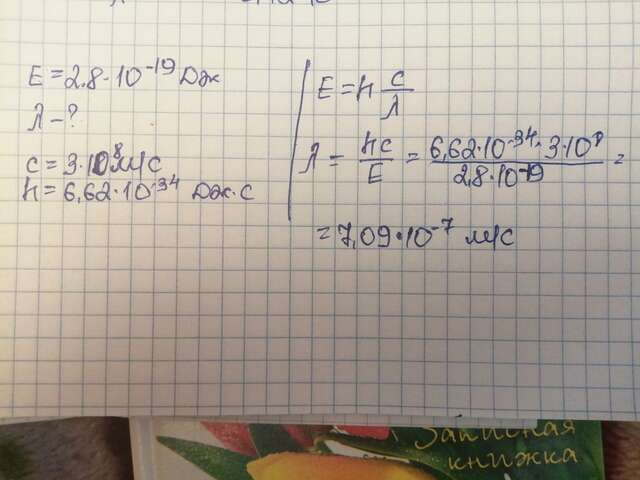 E = 2.8 · 10⁻¹⁹ Дж
λ – ?
c = 3 · 10⁸ м/с
h = 6,62 · 10⁻³⁴ Дж · с
E = h c/λ
λ = hc/E = 6,62 · 10⁻³⁴ · 3 · 10⁸ / 2,8 · 10⁻¹⁹ =
= 7,09 · 10⁻⁷ м/с
Записная
книжка